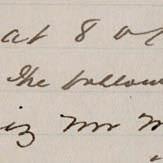 at 8 o'
The follow
iz Mr M